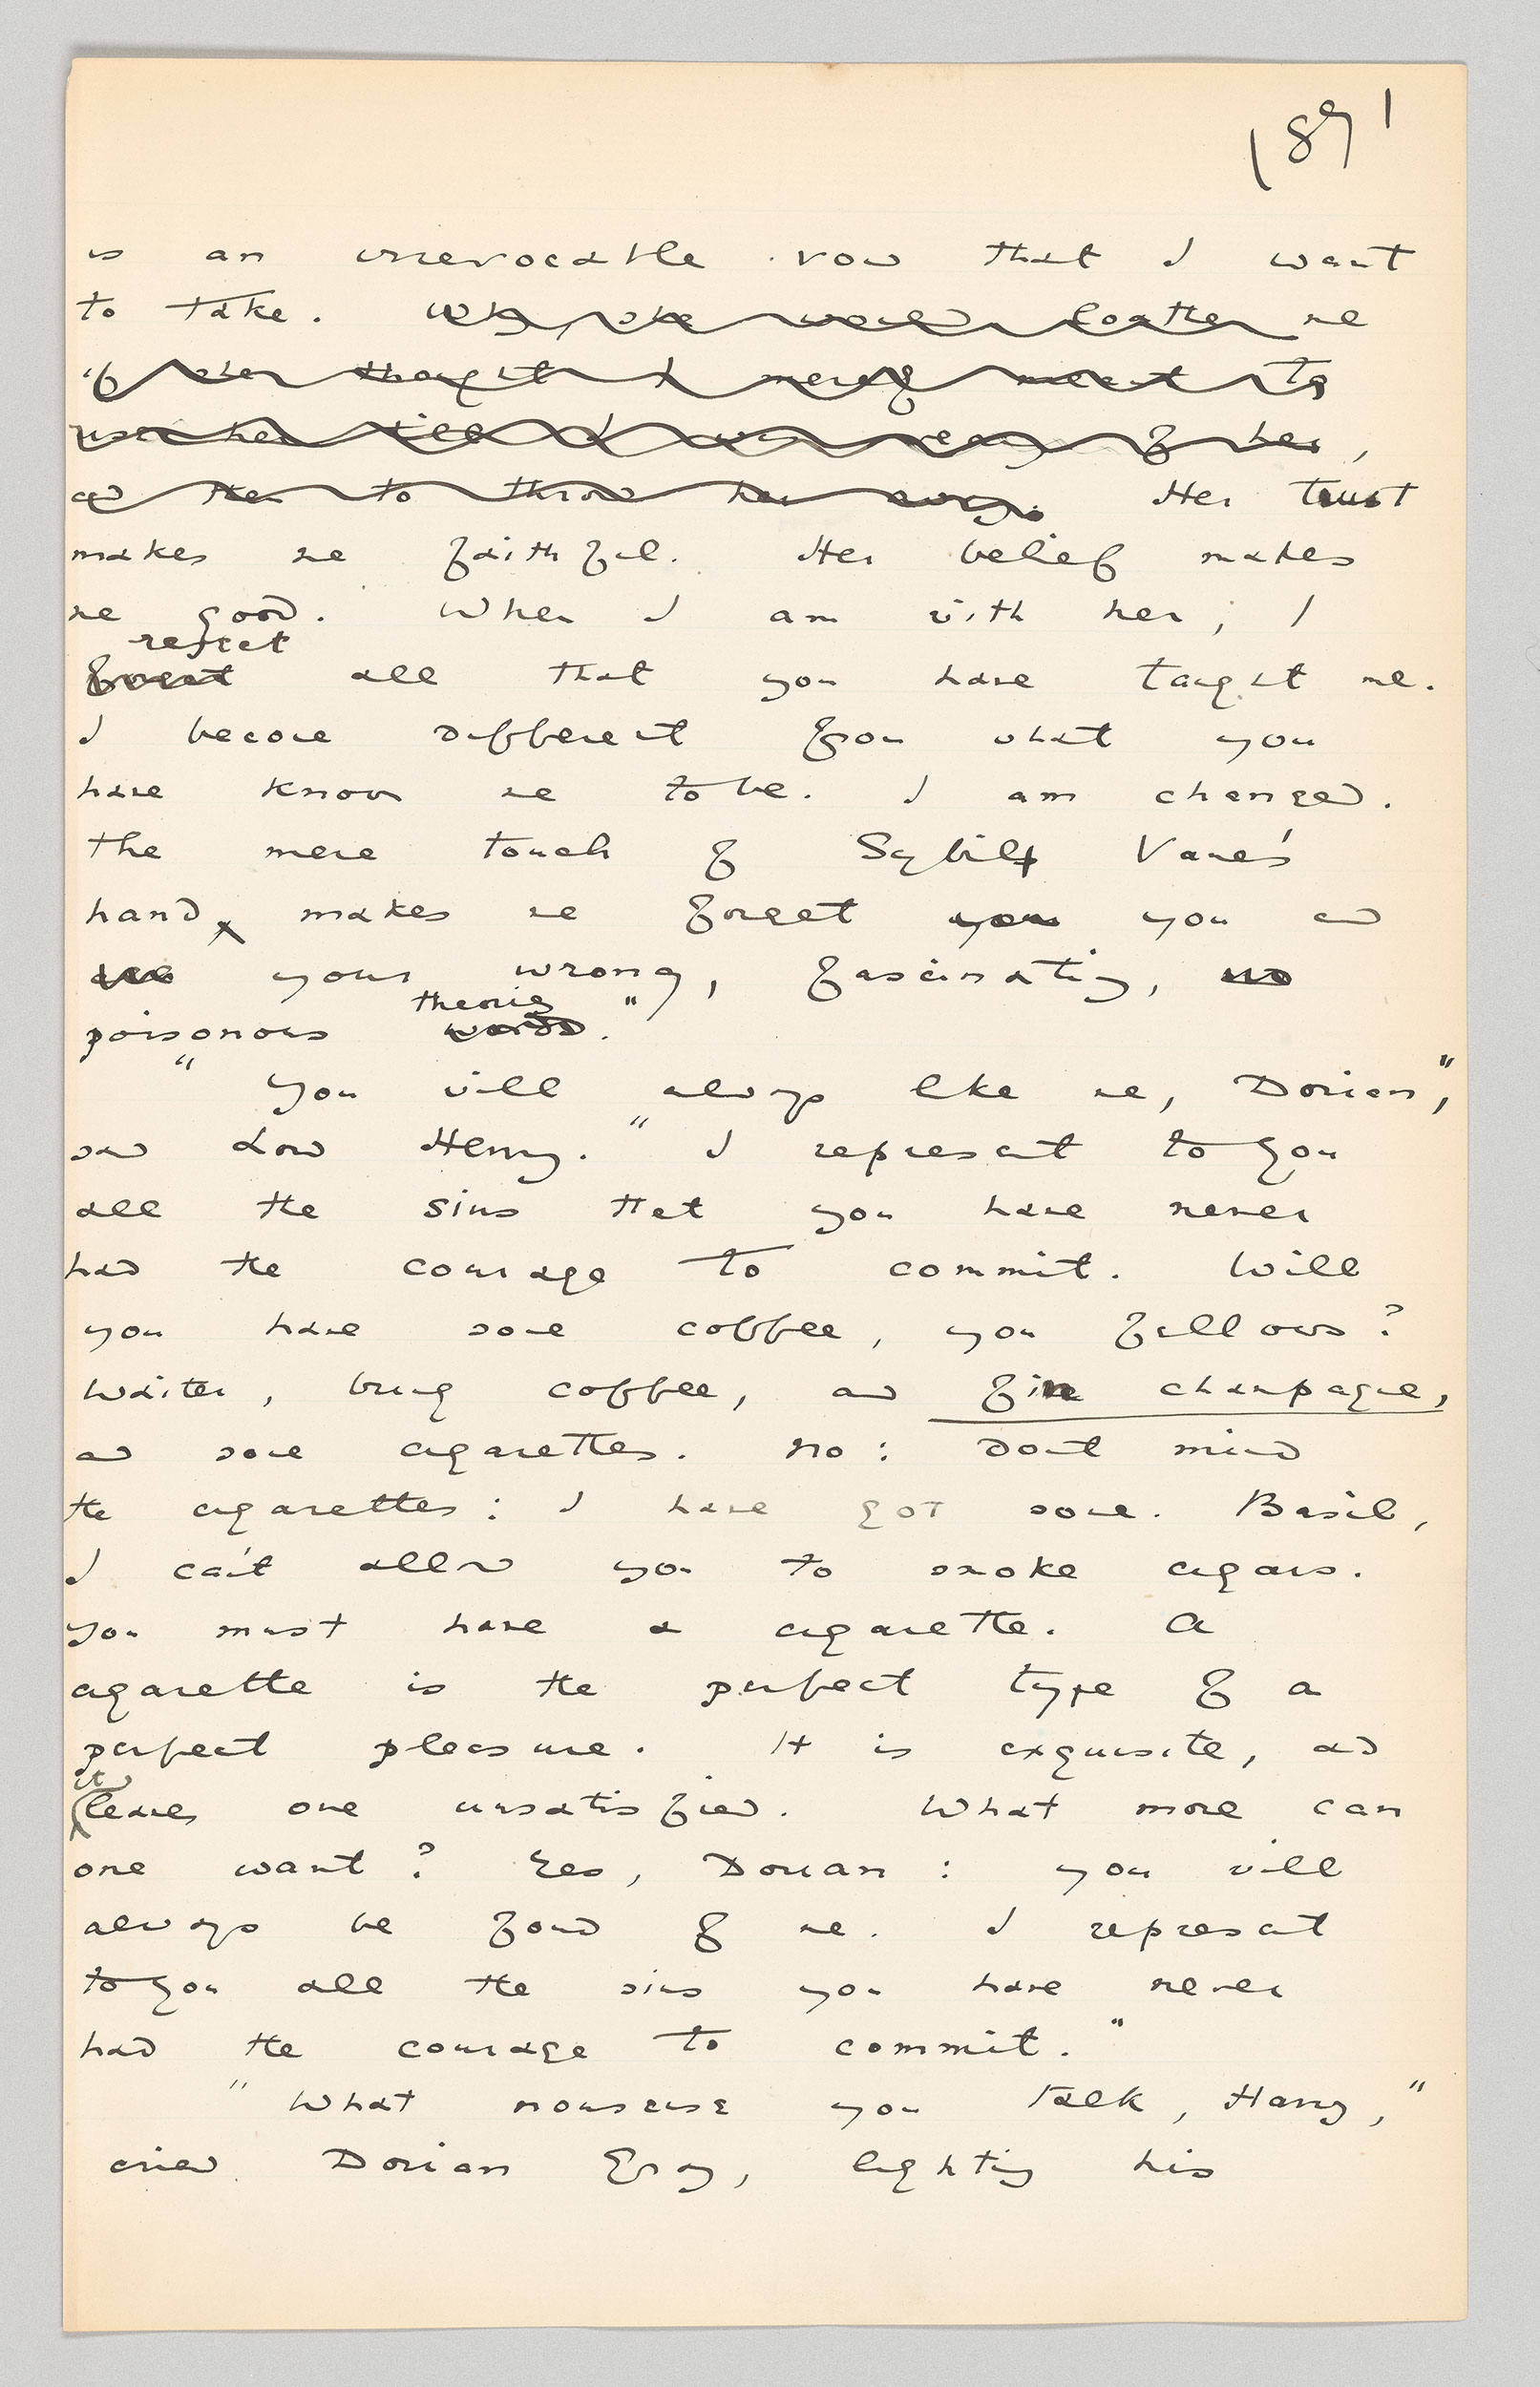 (89)
is an irrevocable vow that I want
to take. Why, she would loathe me
if she thought I merely meant to
use her till I was weary of her,
and then to throw her away. Her trust
makes me faithful. Her belief makes
me good. When I am with her, I
regret
all that you have taught me.
I become different from what you
have known me to be. I am changed.
The mere touch of Sybil Vane's
hand makes me forget you you and
all your wrong, fascinating,
theories "
poisonous words.
" You will always like me, Dorian,"
said Lord Henry. " I represent to you
all the sins that you have never
had the courage to commit. Will
you have some coffee, you fellows?
Waiter, bring coffee, and fine champagne,
and some cigarettes. No: don't mind
the cigarettes: I have got some. Basil,
I can't allow you to smoke cigars.
You must have a cigarette. A
cigarette is the perfect type of a
perfect pleasure. It is exquisite, and
it
leaves one unsatisfied. What more can
one want? Yes, Dorian: you will
always be fond of me. I represent
to you all the sins you have never
had the courage to commit."
" What nonsense you talk, Harry,"
cried Dorian Gray, lighting his